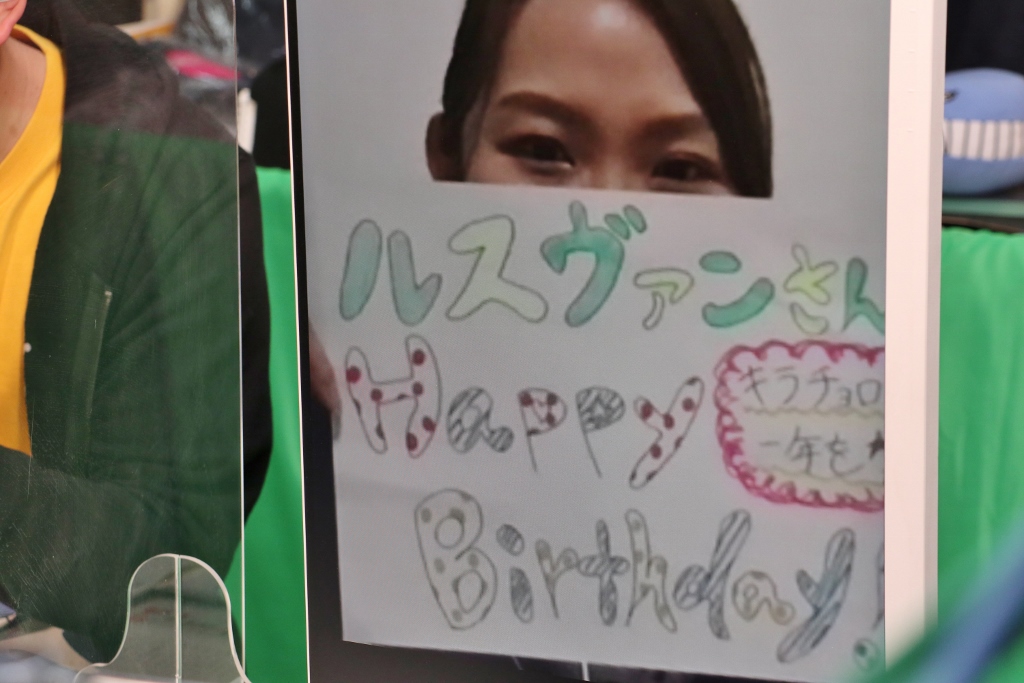 ルスヴァンさん
Happy
キラチョロ
一年を★
Birthday!